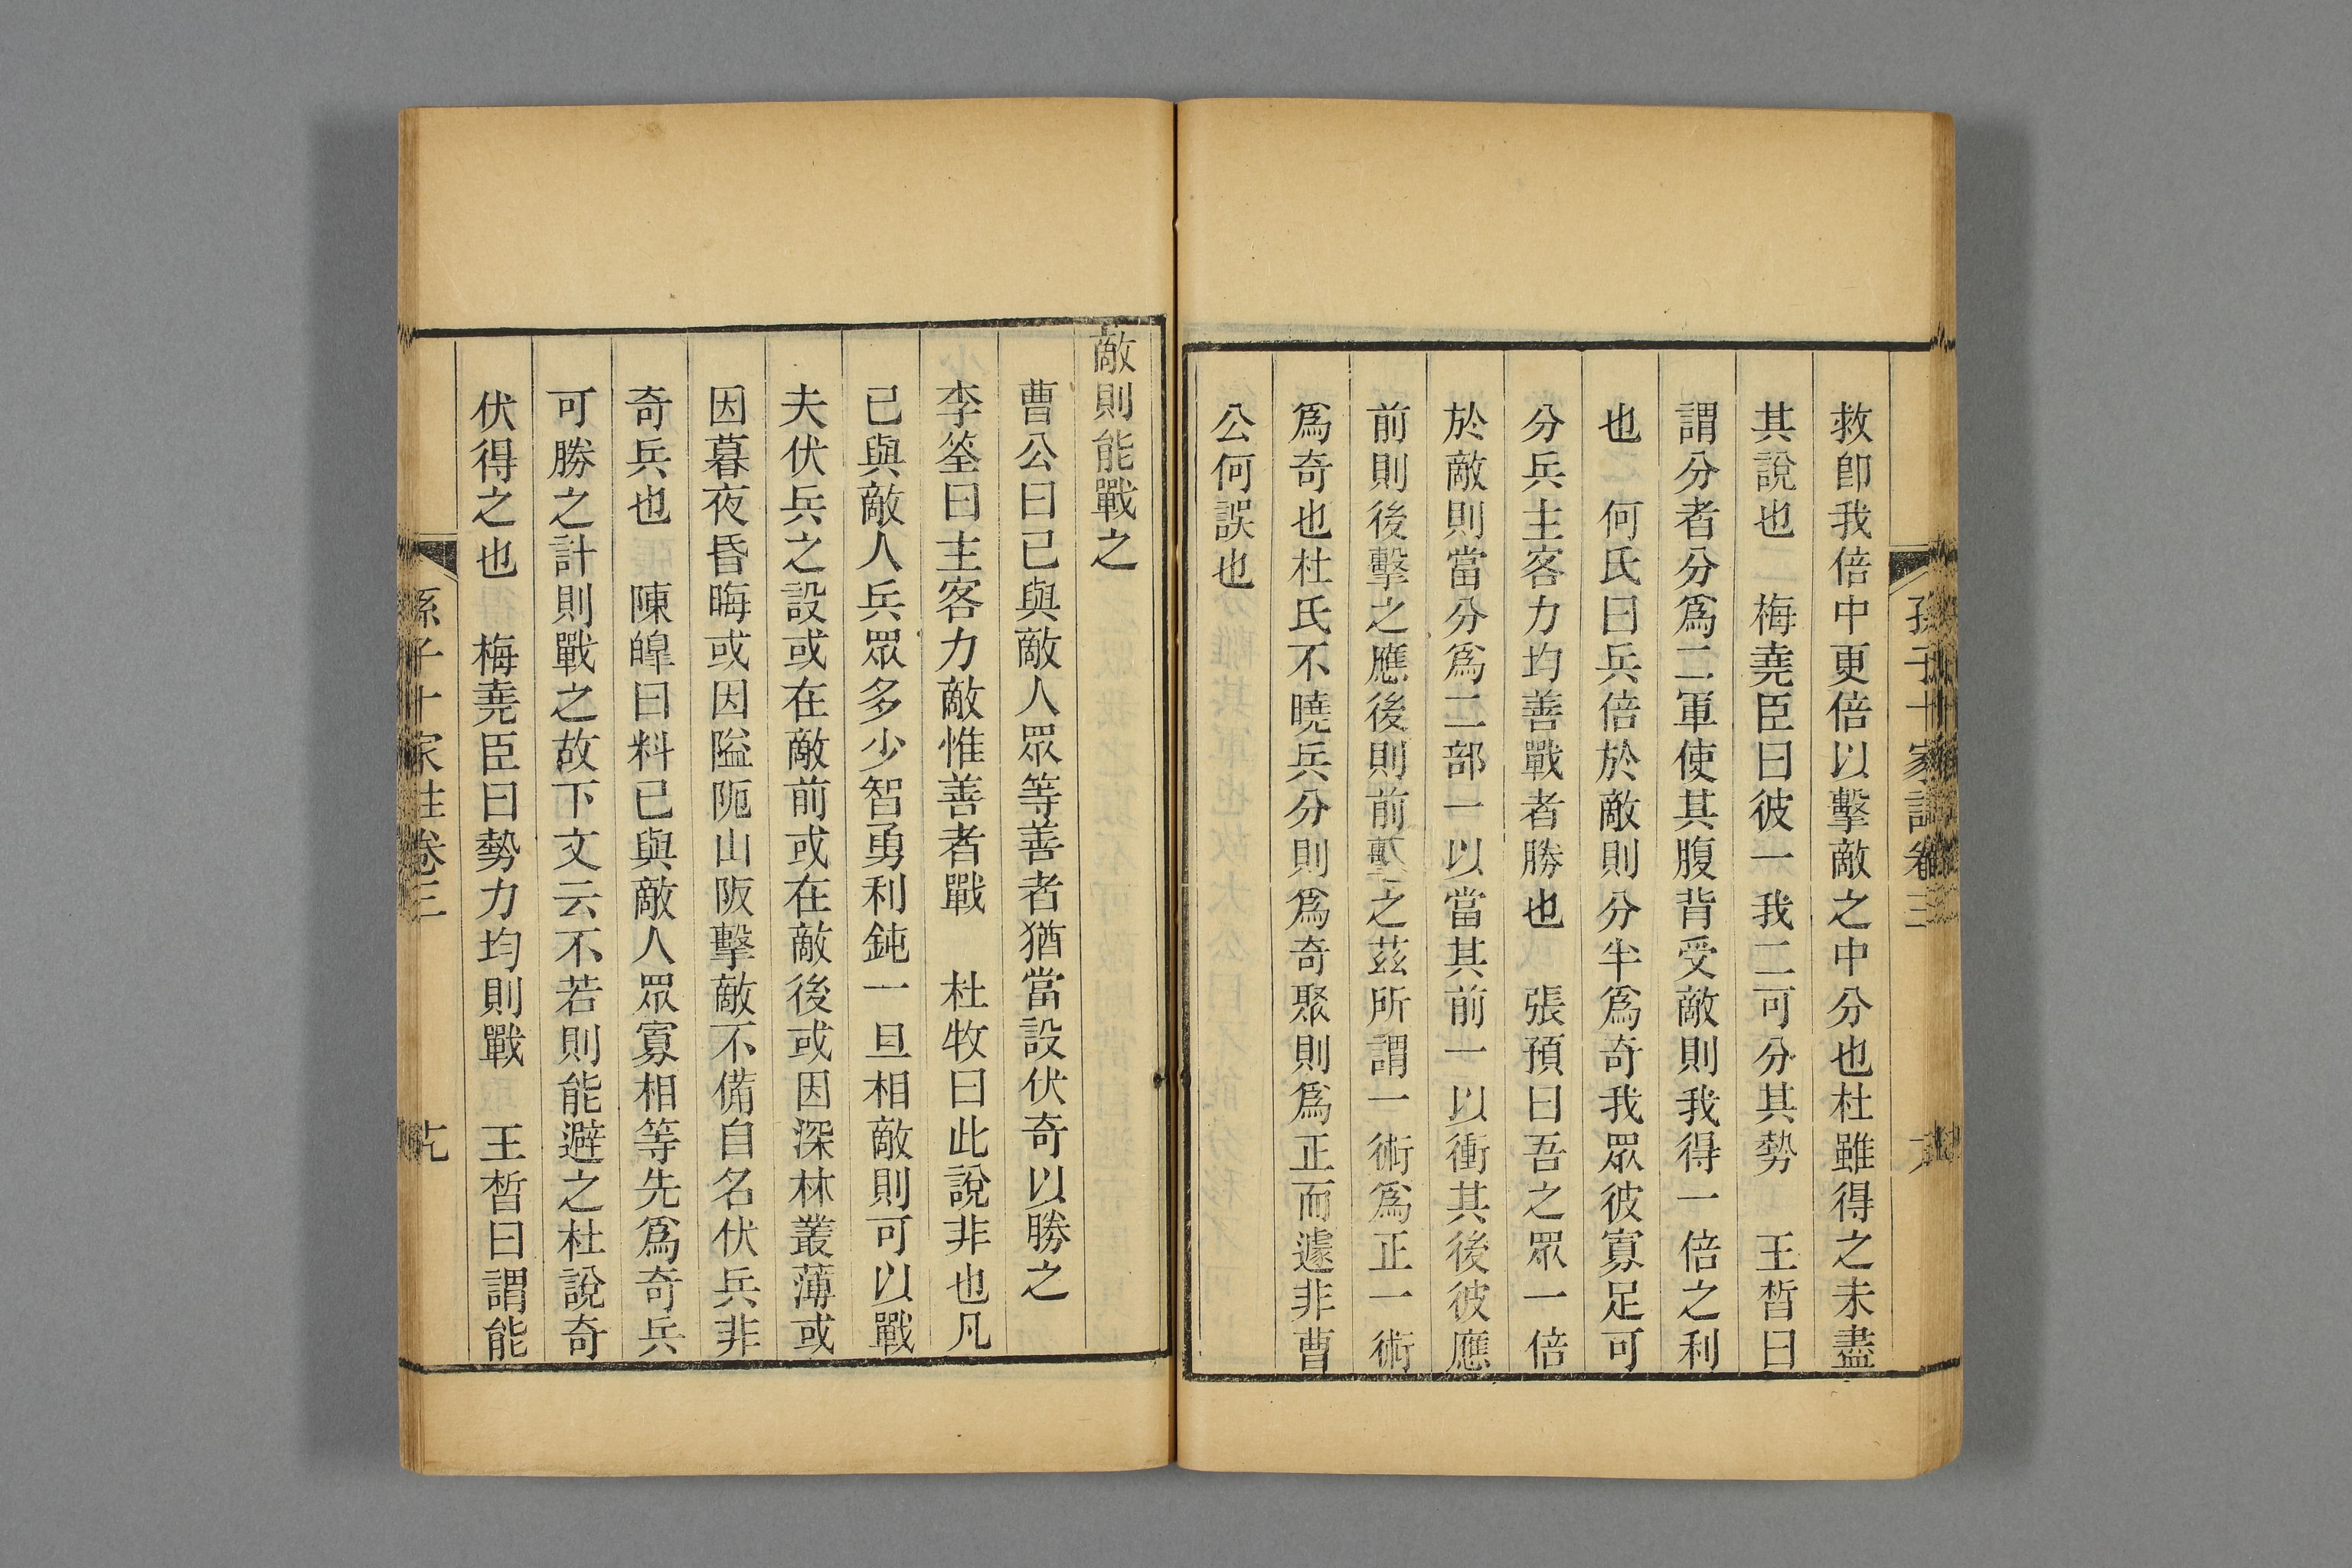 孫子十家註卷三
救卽我倍中更倍以擊敵之中分也杜雖得之未盡
其說也 梅堯臣曰彼一我二可分其勢 王晳曰
謂分者分爲二軍使其腹背受敵則我得一倍之利
也 何氏曰兵倍於敵則分半爲奇我眾彼寡足可
分兵主客力均善戰者勝也 張預曰吾之眾一倍
於敵則當分爲二部一以當其前一以衝其後彼應
前則後擊之應後則前擊之茲所謂一術爲正一術
爲奇也杜氏不曉兵分則爲奇聚則爲正而遽非曹
公何誤也
敵則能戰之
曹公曰已與敵人眾等善者猶當設伏奇以勝之
李筌曰主客力敵惟善者戰 杜牧曰此說非也凡
已與敵人兵眾多少智勇利鈍一旦相敵則可以戰
夫伏兵之設或在敵前或在敵後或因深林叢薄或
因暮夜昏晦或因隘阨山阪擊敵不備自名伏兵非
奇兵也 陳皥曰料已與敵人眾寡相等先爲奇兵
可勝之計則戰之故下文云不若則能避之杜說奇
伏得之也 梅堯臣曰勢力均則戰 王晳曰謂能
孫子十家註卷三